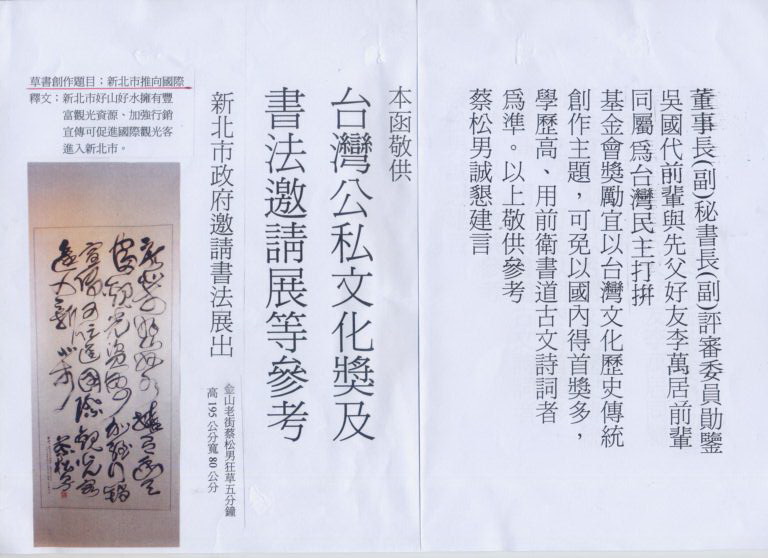 董事長(副)秘書長(副)評審委員勛鑒
吳國代前輩與先父好友李萬居前輩
同屬為台灣民主打拚
基金會獎勵宜以台灣文化歷史傳統
創作主題，可免以國內得首獎多，
學歷高、用前衛書道古文詩詞者
為準。以上敬供參考
蔡松男誠懇建言
本函敬供
台灣公私文化獎及
書法邀請展等參考
新北市政府邀請書法展出
金山老街蔡松男狂草五分鐘
高195公分寬80公分
草書創作題目；新北市推向國際
釋文；新北市好山好水擁有豐
富觀光資源、加強行銷
宣傳可促進國際觀光客
進入新北市。